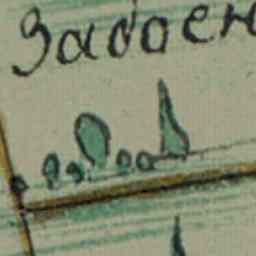 Задоен